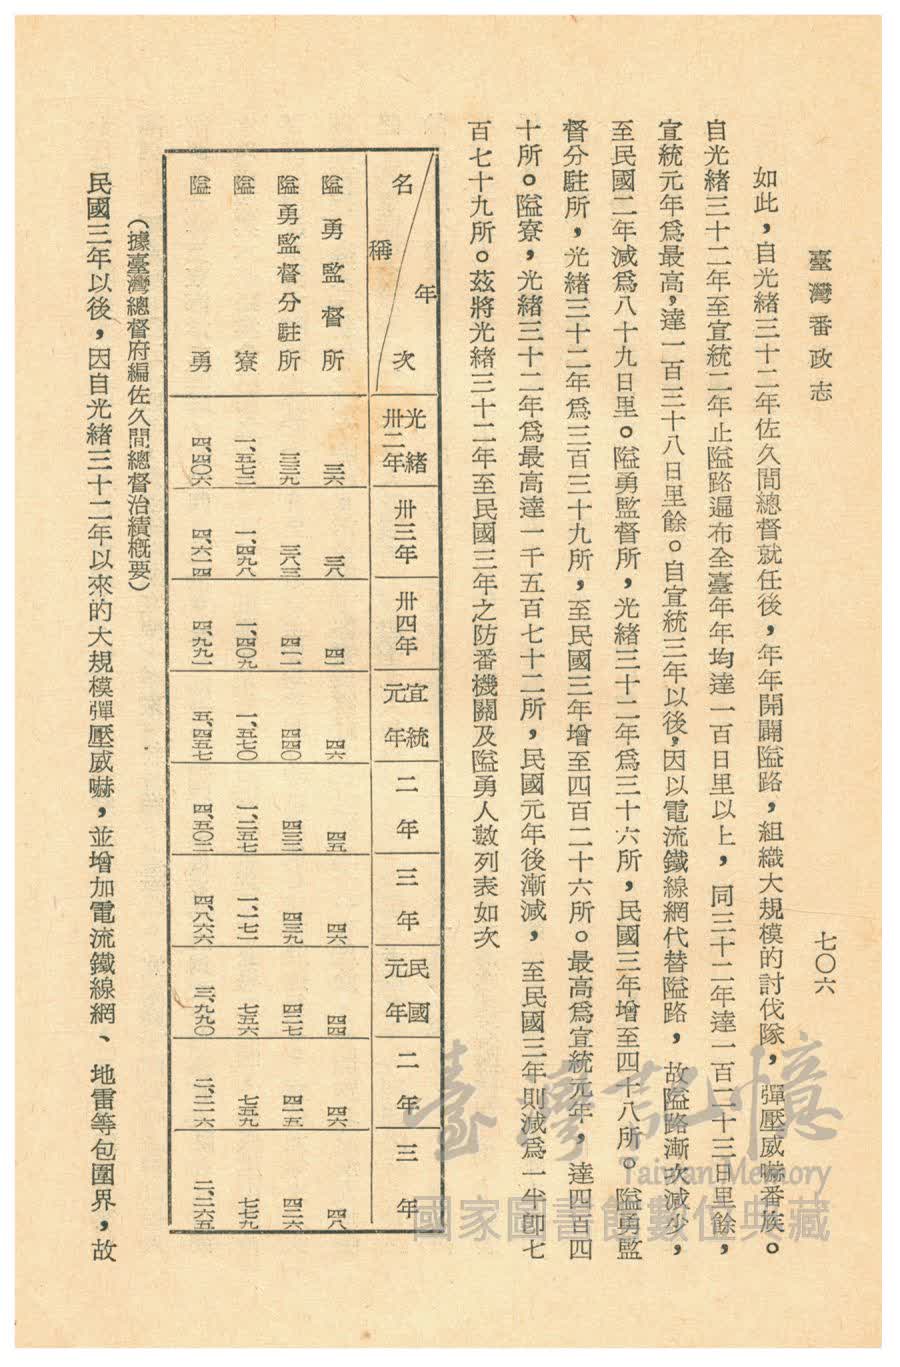 臺灣番政志
七〇六
如此，自光緒三十二年佐久間總督就任後，年年開闢隘路，組織大規模的討伐隊，彈壓威嚇番族。
自光緒三十二年至宣統二年止隘路遍布全臺年年均達一百日里以上，同三十二年達一百二十三日里餘，
宣統元年爲最高，達一百三十八日里餘。自宣統三年以後，因以電流鐵線網代替隘路，故隘路漸次減少，
至民國二年減爲八十九日里。隘勇監督所，光緒三十二年爲三十六所，民國三年增至四十八所。隘勇監
督分駐所，光緒三十二年爲三百三十九所，至民國三年增至四百二十六所。最高爲宣統元年，達四百四
十所。隘寮，光緒三十二年爲最高達一千五百七十二所，民國元年後漸減，至民國三年則減爲一半卽七
百七十九所。茲將光緒三十二年至民國三年之防番機關及隘勇人數列表如次
年次 名稱 光緒卅二年 卅三年 卅四年 宣統元年 二年 三年 民國元年 二年 三年
隘勇監督所 三六 三八 四一 四六 四五 四六 四四 四六 四八
隘勇監督分駐所 三三九 三八三 四一一 四四〇 四三二 四三九 四二七 四一五 四二六
隘寮 一、五七二 一、四九八 一、四〇九 一、五七〇 一、二五七 一、一七二 七五六 七五九 七七九
隘勇 四、四〇六 四、六一四 四、九九一 五、四五七 四、五〇二 四、八六六 三、九九〇 二、三一六 二、二六五
（據臺灣總督府編佐久間總督治績概要）
民國三年以後，因自光緒三十二年以來的大規模彈壓威嚇，並增加電流鐵線網、地雷等包圍界，故
臺灣記憶
Taiwan Memory
國家圖書館數位典藏